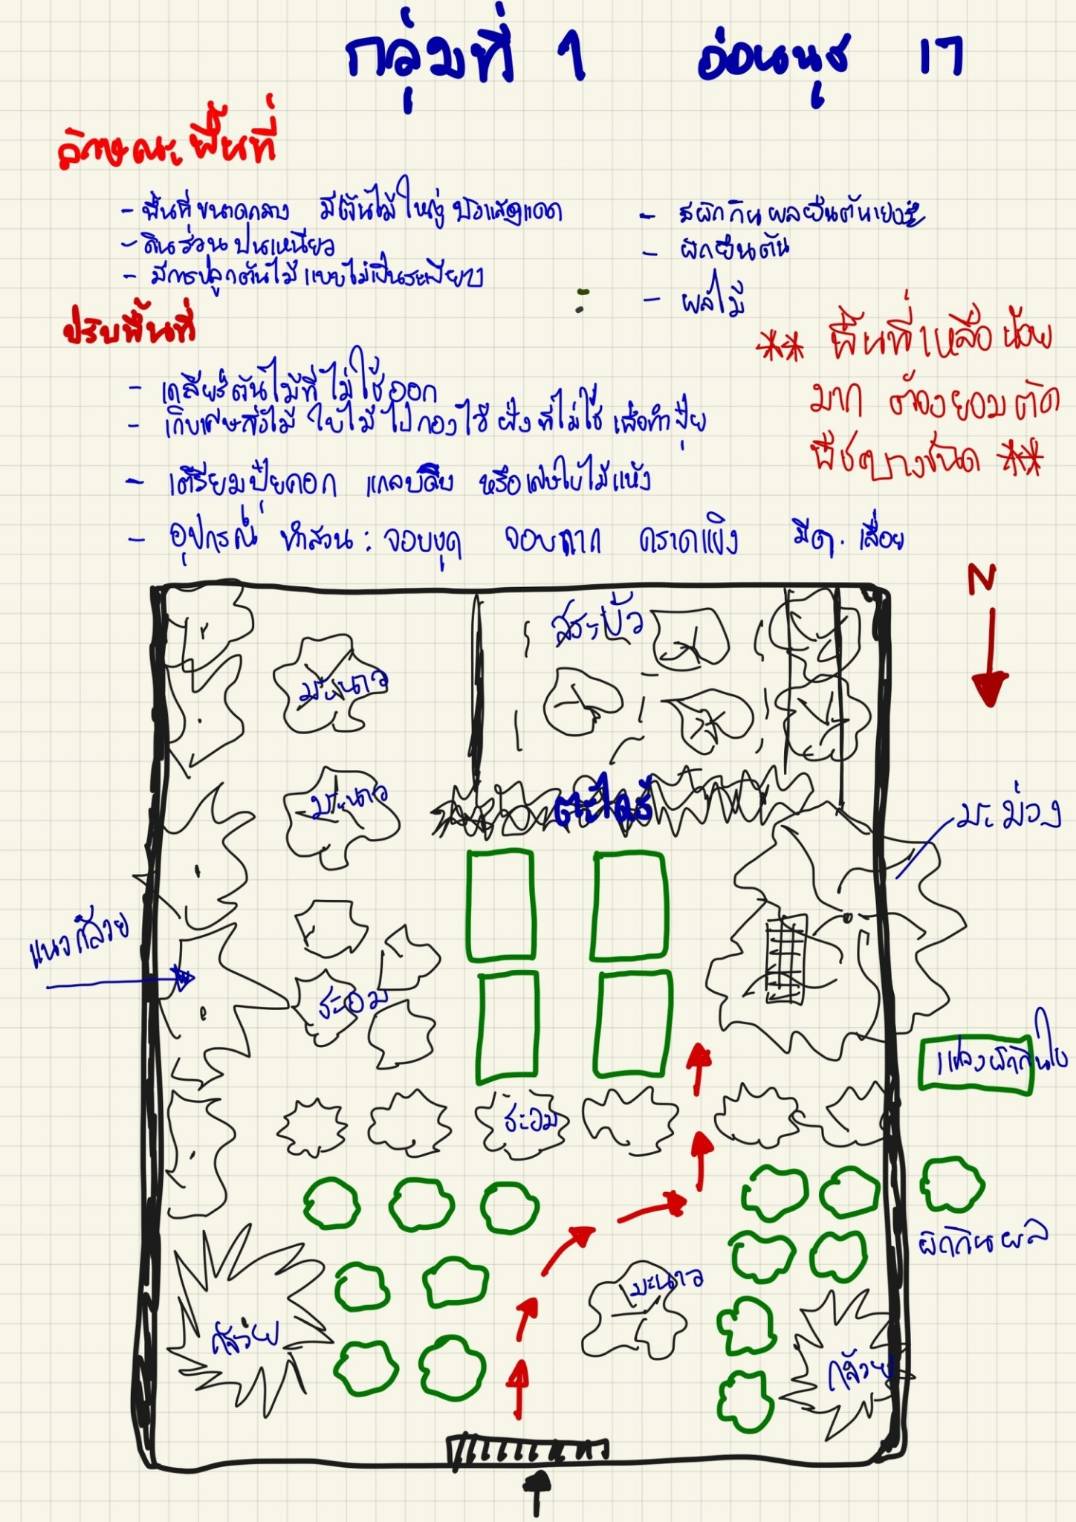 กลุ่มที่ 1 อ่อนนุช 17
ลักษณะพื้นที่
- พื้นที่ขนาดกลาง มีต้นไม้ใหญ่บังแสงแดด
- ดินร่วนปนเหนียว
- มีการปลูกต้นไม้แบบไม่เป็นระเบียบ
- มีผักกินผลยืนต้นเยอะ
- ผักยืนต้น
- ผลไม้
ปรับพื้นที่
** พื้นที่เหลือน้อย
มาก ต้องยอมตัด
พืชบางชนิด **
- เคลียร์ต้นไม้ที่ไม่ใช้ออก
- เก็บเศษกิ่งไม้ ใบไม้ไปกองไว้ฝั่งที่ไม่ใช้ เพื่อทำปุ๋ย
- เตรียมปุ๋ยคอก แกลบดิบ หรือเศษใบไม้แห้ง
- อุปกรณ์ ทำสวน : จอบขุด จอบถาก คราดแข็ง มีด. เลื่อย
N
สระบัว
มะนาว
มะนาว
ตะไคร้
มะม่วง
แนวกล้วย
ชะอม
แปลงผักกินใบ
ชะอม
ผักกินผล
มะนาว
กล้วย
กล้วย